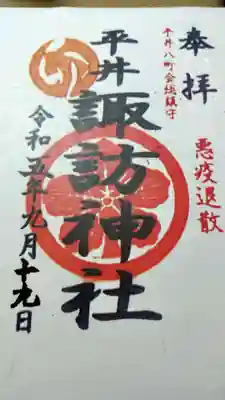 奉拝
悪疫退散
平井八町会総鎮守
平井
諏訪神社
令和五年九月十九日